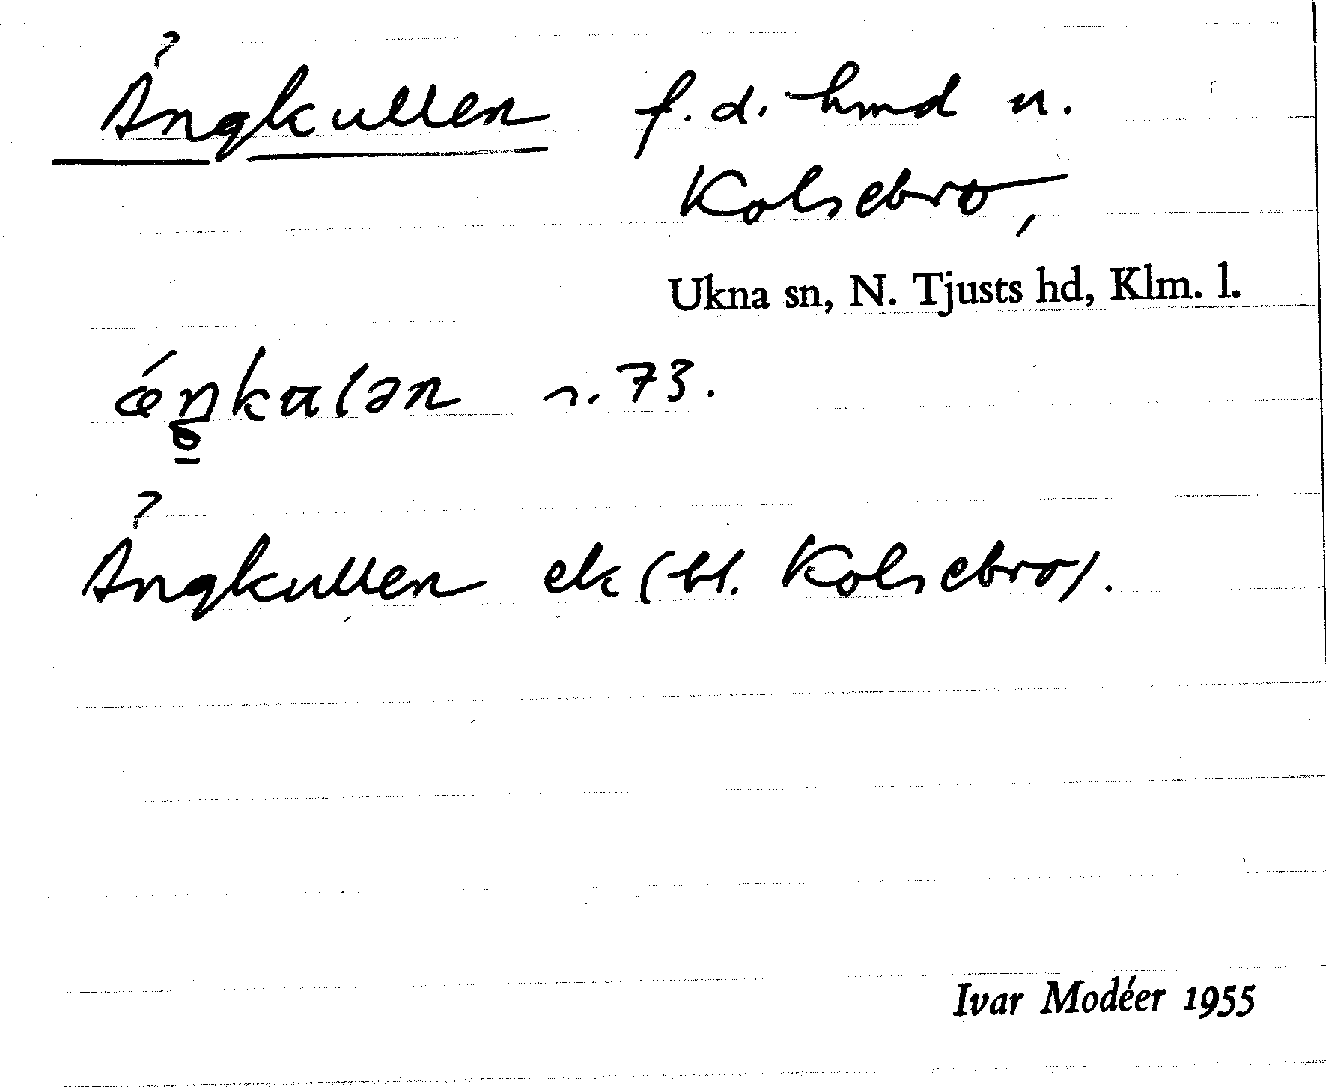 ?
Ängkullen f.d. hmd u.
Kolsebro,
Ukna sn, N. Tjusts hd, Klm. l.
s. 73.
?
Ängkullen ek (bl. Kolsebro).
Ivar Modéer 1955